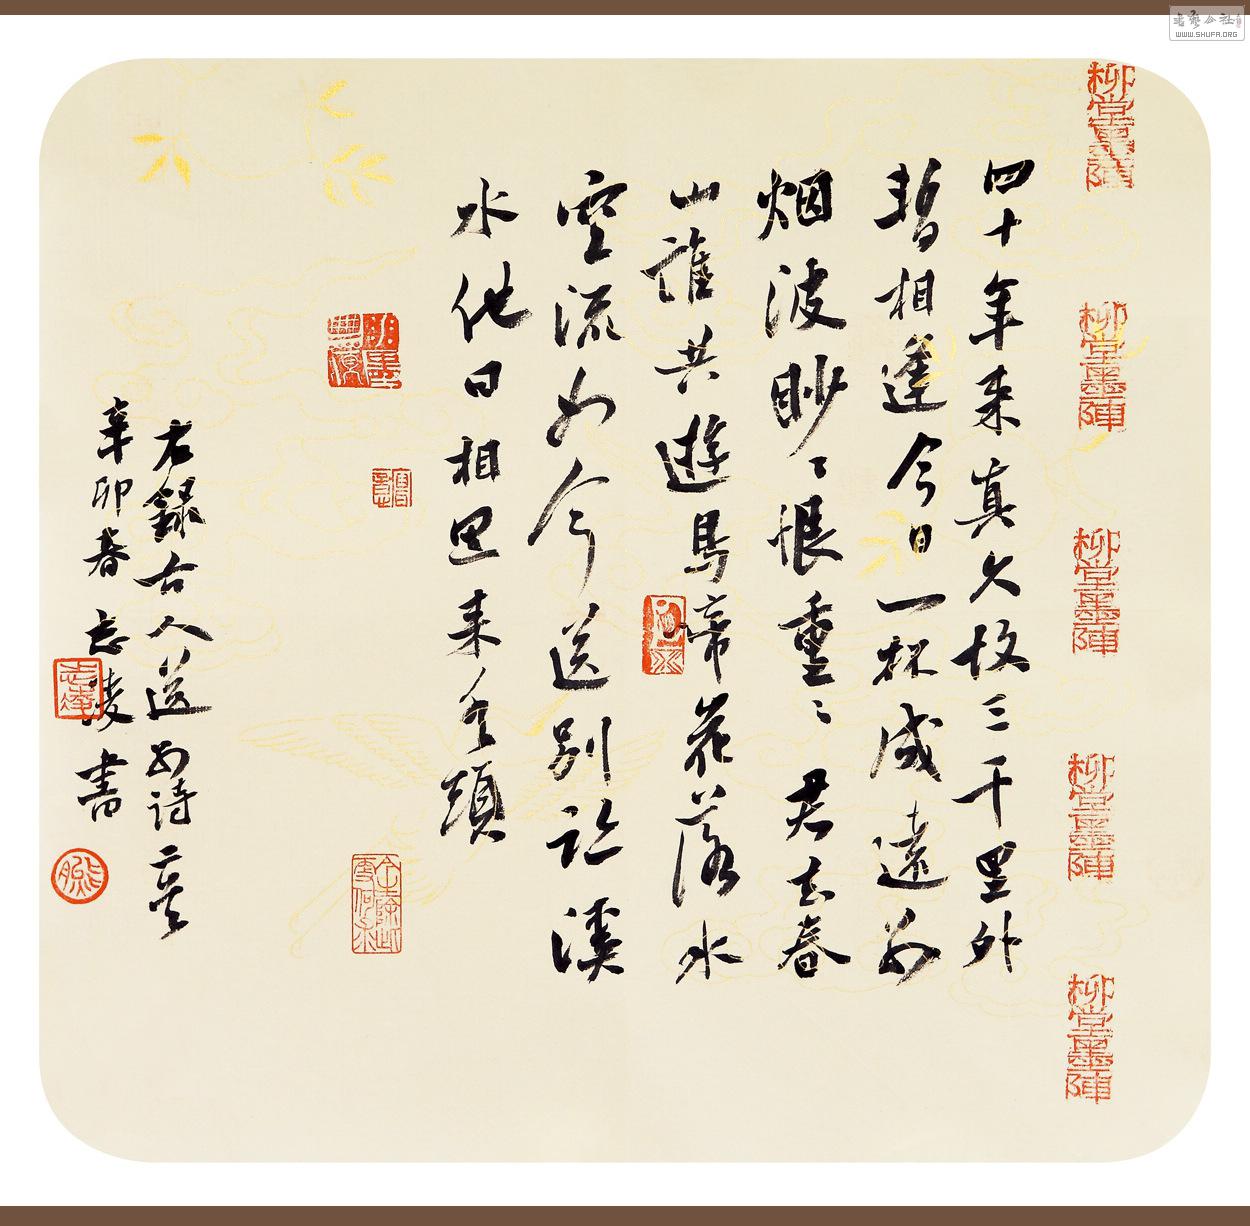 柳堂墨陣
柳堂墨陣
柳堂墨陣
柳堂墨陣
柳堂墨陣
四十年来真久故三千里外
暫相逢今日一杯成遠別
烟波眇〻恨重〻君去春
山誰共遊鳥啼花落水
空流如今送别临溪
水他日相思来水頭
右録古人送别詩二章
辛卯春志凌書
志凌
書藝公社
WWW.SHUFA.ORG